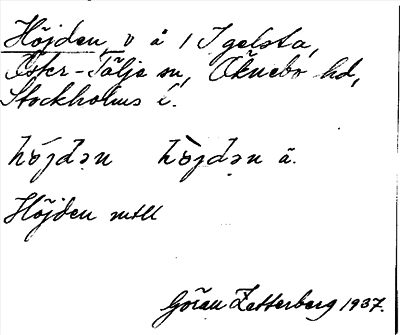 Höjden, v å / Igelsta,
Öster-Tälje sn, Öknebo hd,
Stockholms l.
hö́jdən hö̀jdən ä.
Höjden mtll
Göran Zetterberg 1937.